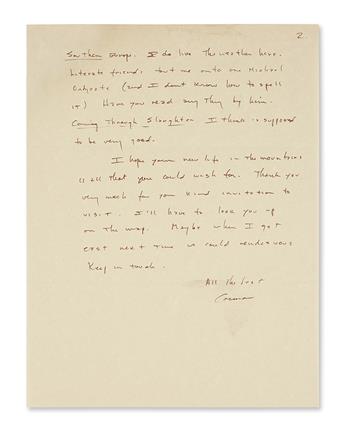 2.
Southern Europe. I do like the weather here.
Literate friends put me onto one Michael
Ondjaote (and I don't know how to spell
it) Have you read any thing by him.
Coming Through Slaughter I think is supposed
to be very good.
I hope your new life in the mountains
is all that you could wish for. Thank you
very much for your kind invitation to
visit. I'll have to look you up
on the map. Maybe when I get
east next time we could rendezvous
Keep in touch.
All the best